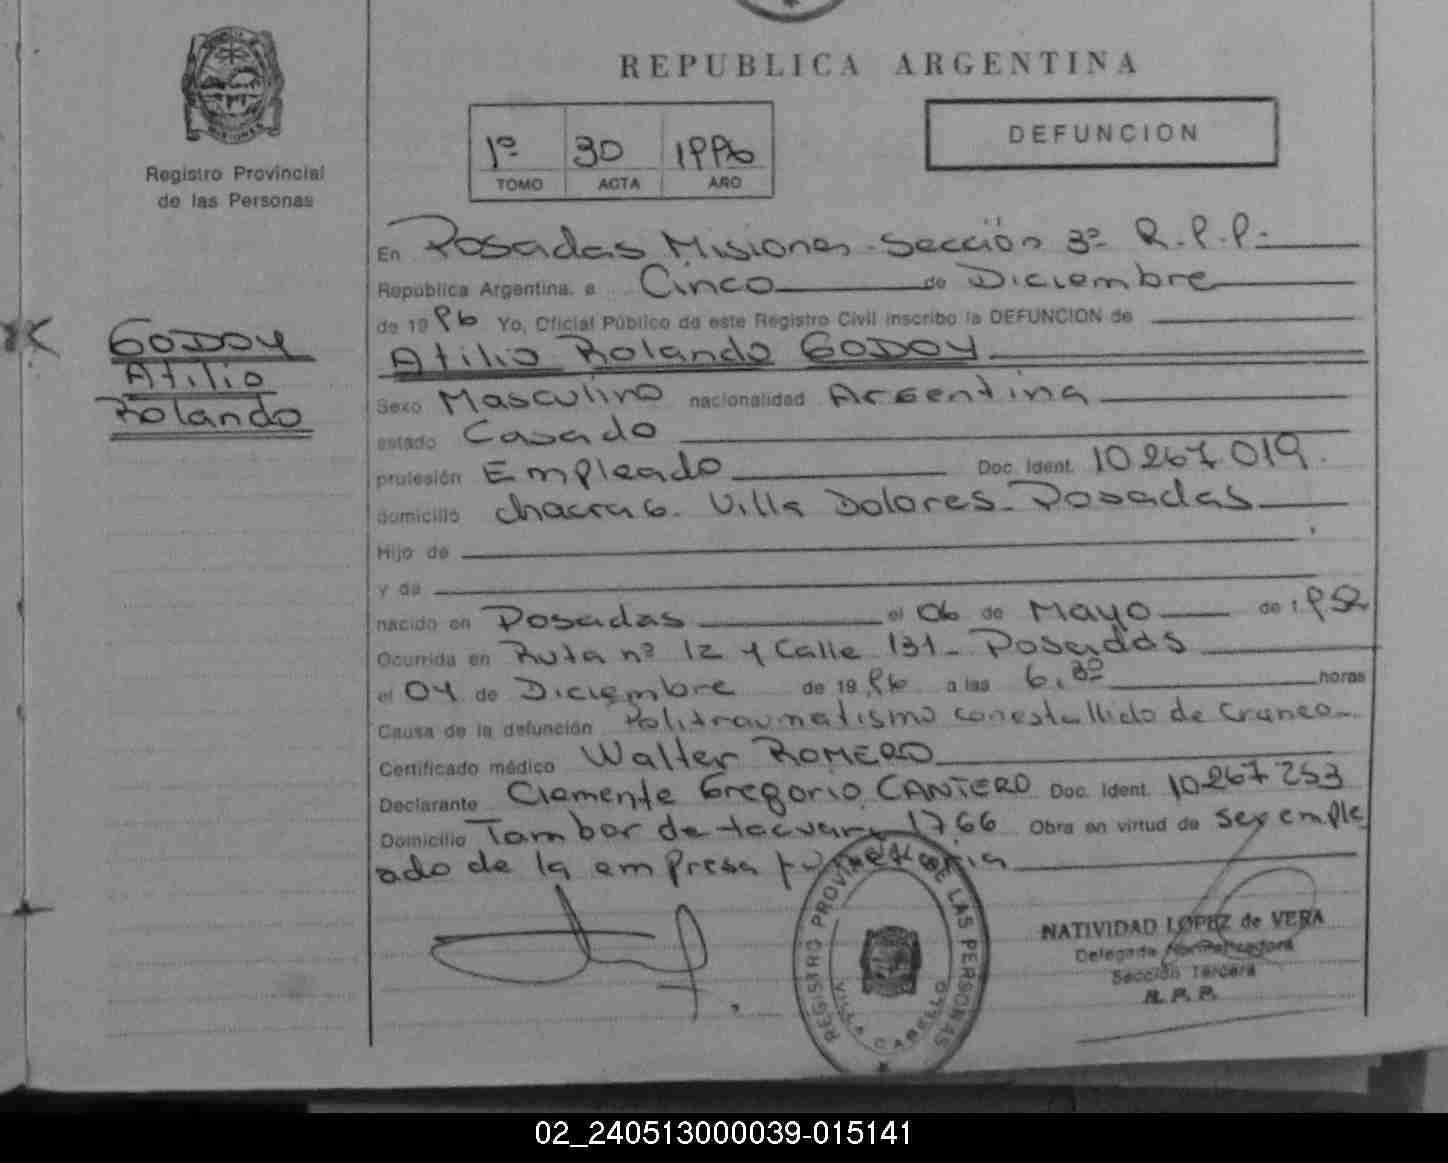 REPUBLICA ARGENTINA
DEFUNCION
1º 30 1996
TOMO ACTA AÑO
MISIONES
Registro Provincial
de las Personas
GODOY
Atilio
Rolando
En Posadas Misiones - Sección 3º R.P.P.
República Argentina, a Cinco de Diciembre
de 1996 Yo, Oficial Público de este Registro Civil inscribo la DEFUNCION de
Atilio Rolando GODOY
Sexo Masculino nacionalidad Argentina
estado Casado
profesión Empleado Doc. Ident. 10267019.
domicilio chacra 6. Villa Dolores - Posadas
Hijo de
y de
nacido en Posadas el 06 de Mayo de 1.952
Ocurrida en Ruta nº 12 y Calle 131 - Posadas
el 04 de Diciembre de 1996 a las 6,30 horas
Causa de la defunción Politraumatismo con estallido de Craneo
Certificado médico Walter ROMERO
Declarante Clemente Gregorio CANTERO Doc. Ident. 10267253
Domicilio Tambor de tacuari 1766 Obra en virtud de ser emple
ado de la empresa funeraria
REGISTRO PROVINCIAL DE LAS PERSONAS
VILLA CABELLO
NATIVIDAD LOPEZ de VERA
Delegada Normalizadora
Sección Tercera
R. P. P.
02_240513000039-015141